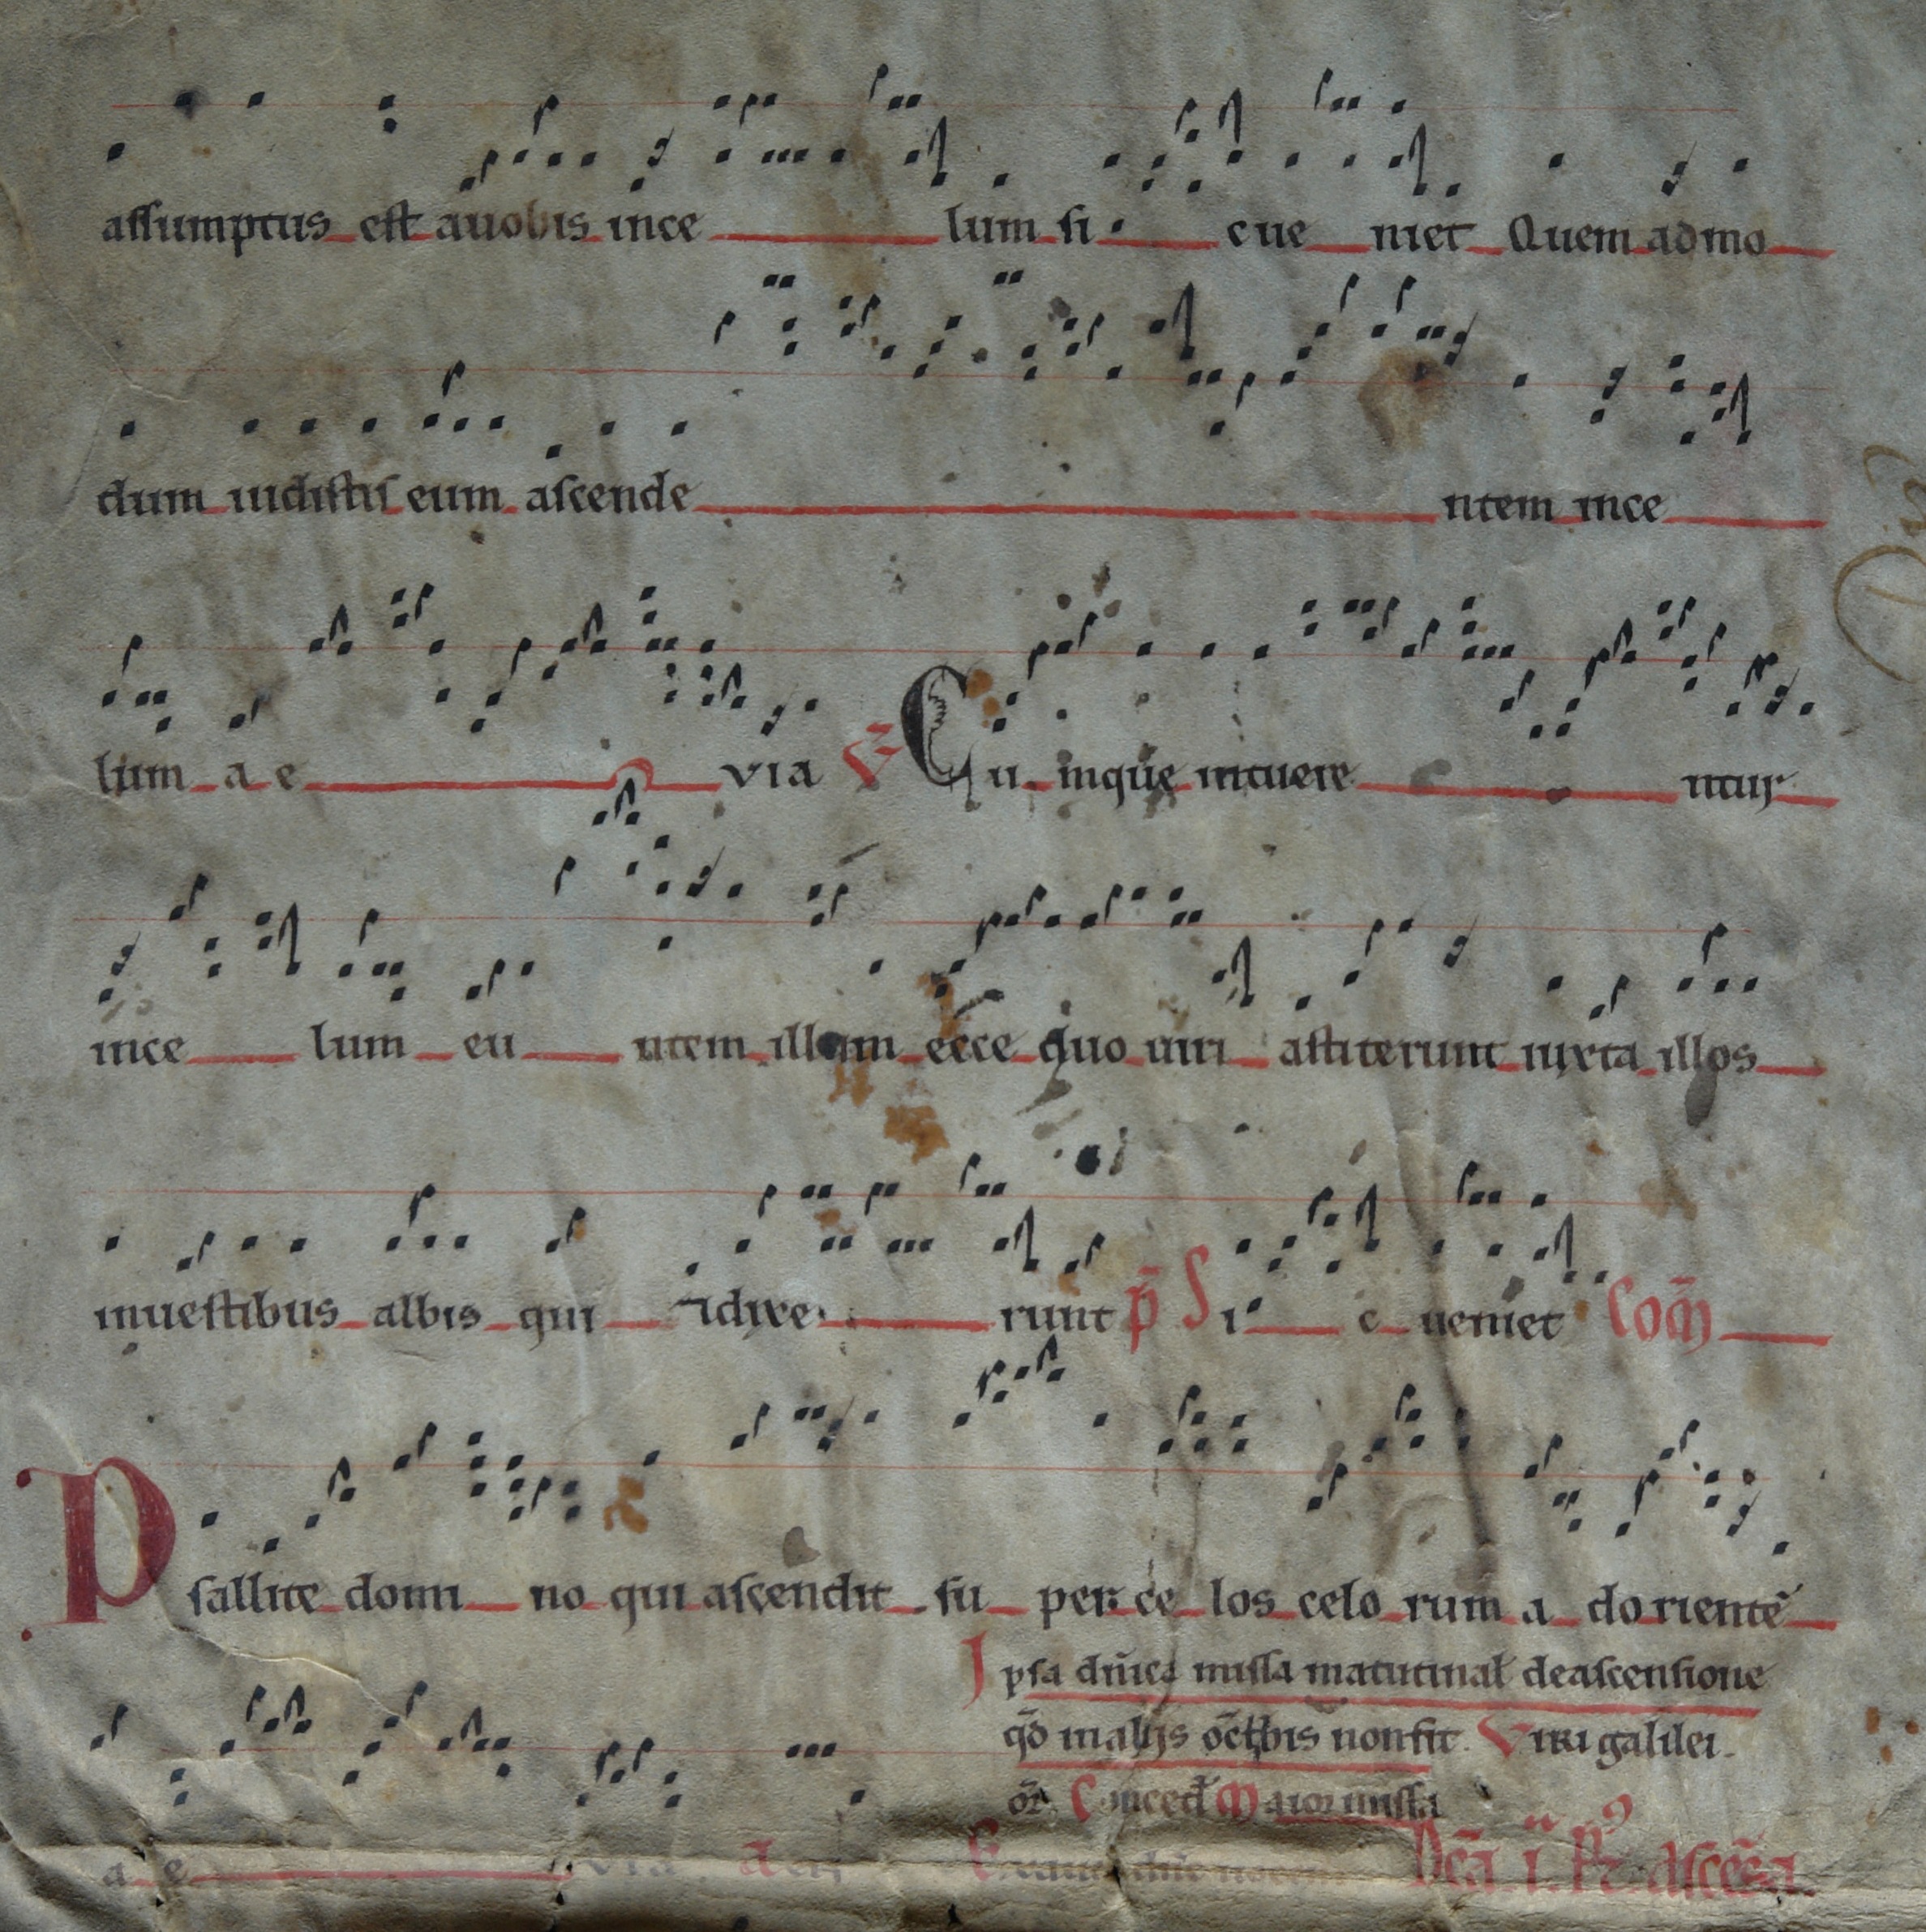 assumptus est a uobis in ce lum si c ue niet Quem ad mo
dum uidistis eum ascende ntem in ce
lum a e via V̄ Cu mque intuere ntur
in ce lum eu ntem illum ecce duo uiri astiterunt iuxta illos
in uestibus albis qui dixe runt p̄ Si c ueniet Com̄
Psallite domi no qui ascendit su per ce los celo rum a do rientē
Ipsa dn̄ica missa matutinal de ascensione
qd̄ in alijs oct̄bis non fit. Viri galilei.
or̄. Conced Maior missa
a e via. E dn̄e Dc̄a i. p̄ ascēsa.